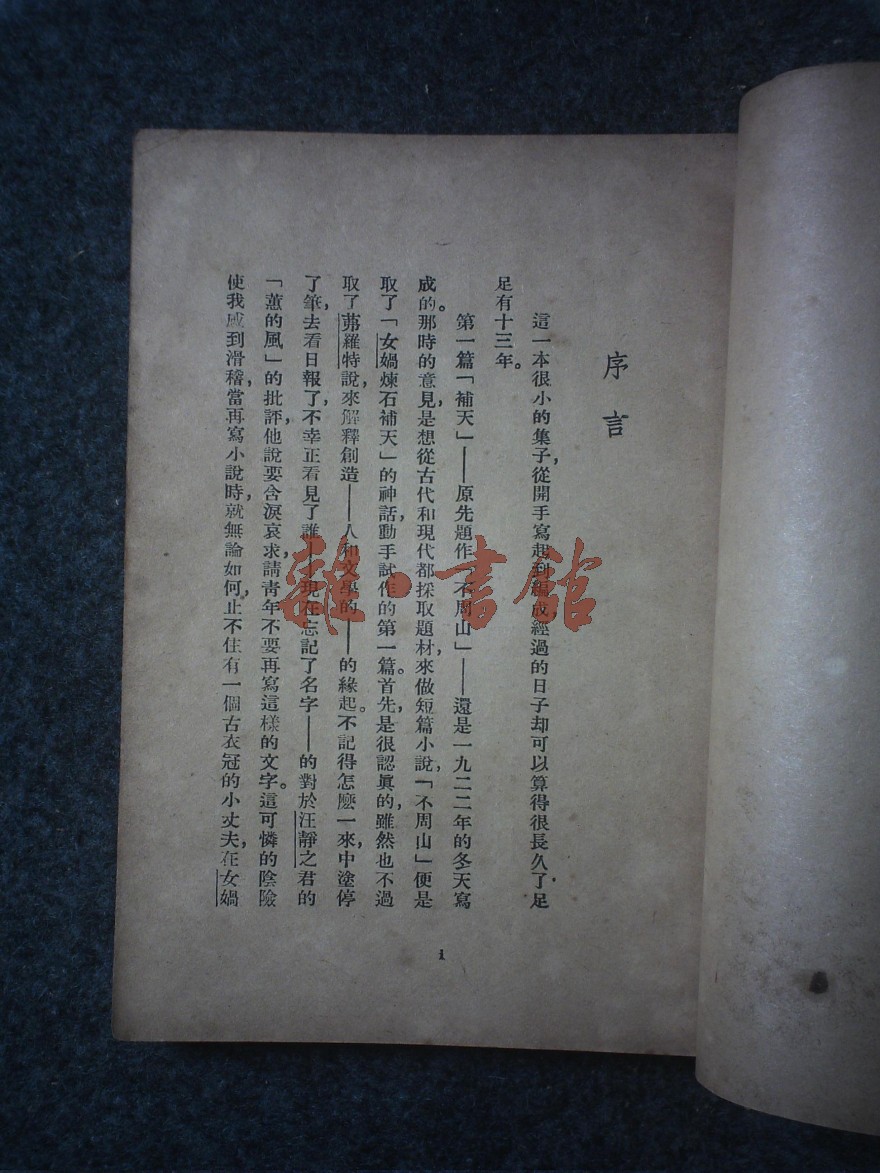 序言
這一本很小的集子，從開手寫起到編成，經過的日子却可以算得很長久了：足
足有十三年。
第一篇「補天」——原先題作「不周山」——還是一九二二年的冬天寫
成的。那時的意見，是想從古代和現代都採取題材，來做短篇小說，「不周山」便是
取了「女媧煉石補天」的神話，動手試作的第一篇。首先，是很認眞的，雖然也不過
取了茀羅特說，來解釋創造——人和文學的——的緣起。不記得怎麽一來，中塗停
了筆，去看日報了，不幸正看見了誰——現在忘記了名字——的對於汪靜之君的
「蕙的風」的批評，他說要含淚哀求，請靑年不要再寫這樣的文字。這可憐的陰險
使我感到滑稽，當再寫小說時，就無論如何，止不住有一個古衣冠的小丈夫，在女媧
i
雜·書館